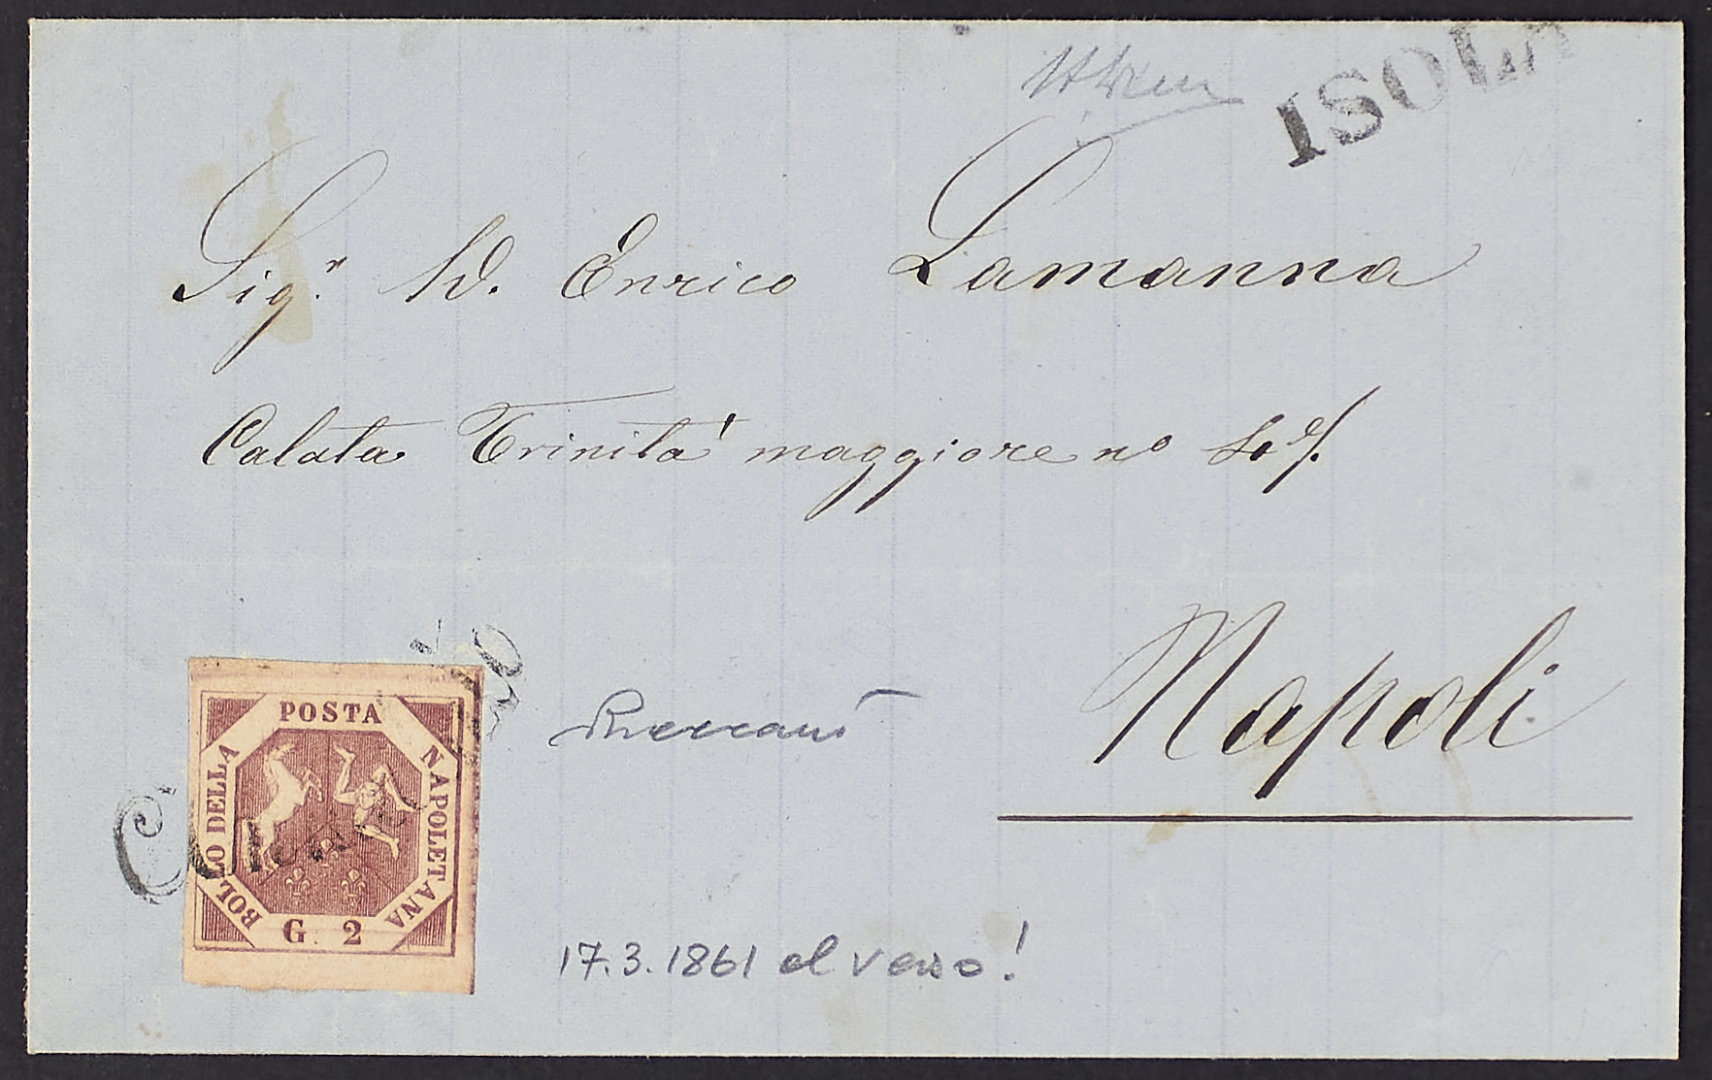 ISOLA
Sig.r D. Enrico Lamanna
Calata Trinità maggiore no
Napoli
POSTA
NAPOLETANA
BOLLO DELLA
G. 2
17.3.1861 al verso!